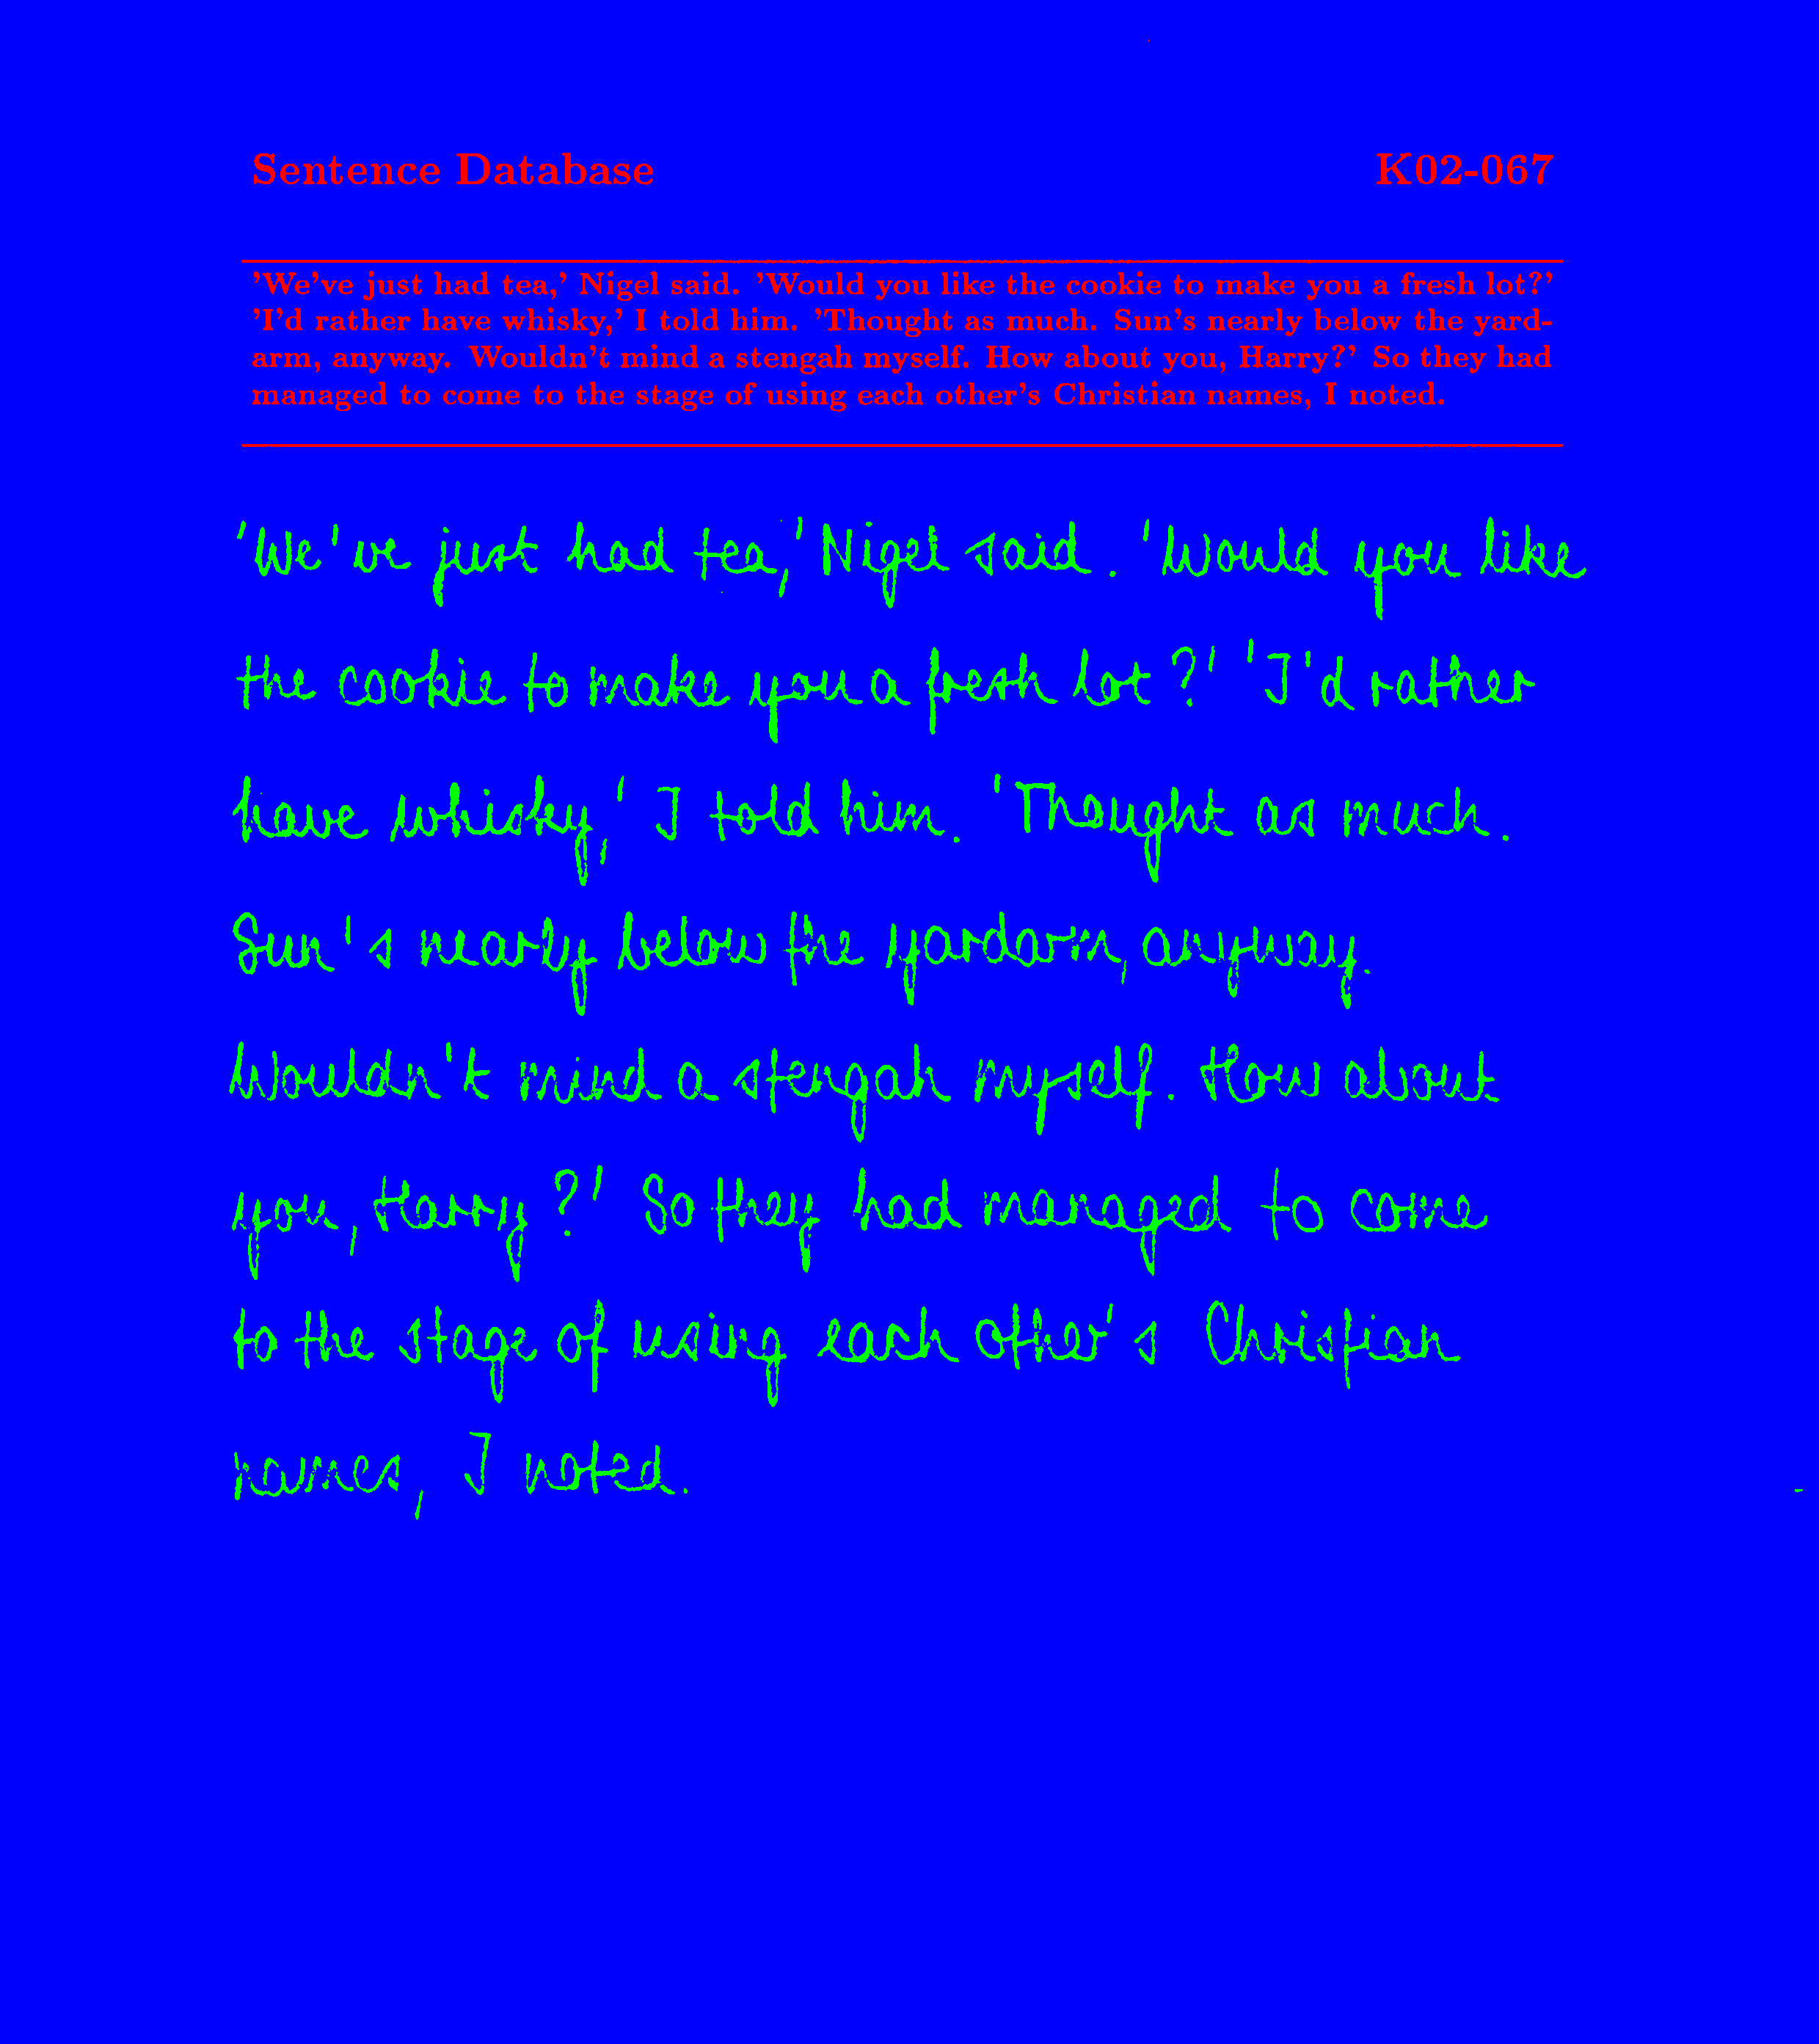 Sentence Database K02-067
'We've just had tea,' Nigel said. 'Would you like the cookie to make you a fresh lot?'
'I'd rather have whisky,' I told him. 'Thought as much. Sun's nearly below the yard-
arm, anyway. Wouldn't mind a stengah myself. How about you, Harry?' So they had
managed to come to the stage of using each other's Christian names, I noted.
'We've just had tea,' Nigel said. 'Would you like
the cookie to make you a fresh lot?' 'I'd rather
have whisky,' I told him. 'Thought as much.
Sun's nearly below the yardarm, anyway.
Wouldn't mind a stengah myself. How about
you, Harry?' So they had managed to come
to the stage of using each other's Christian
names, I noted.